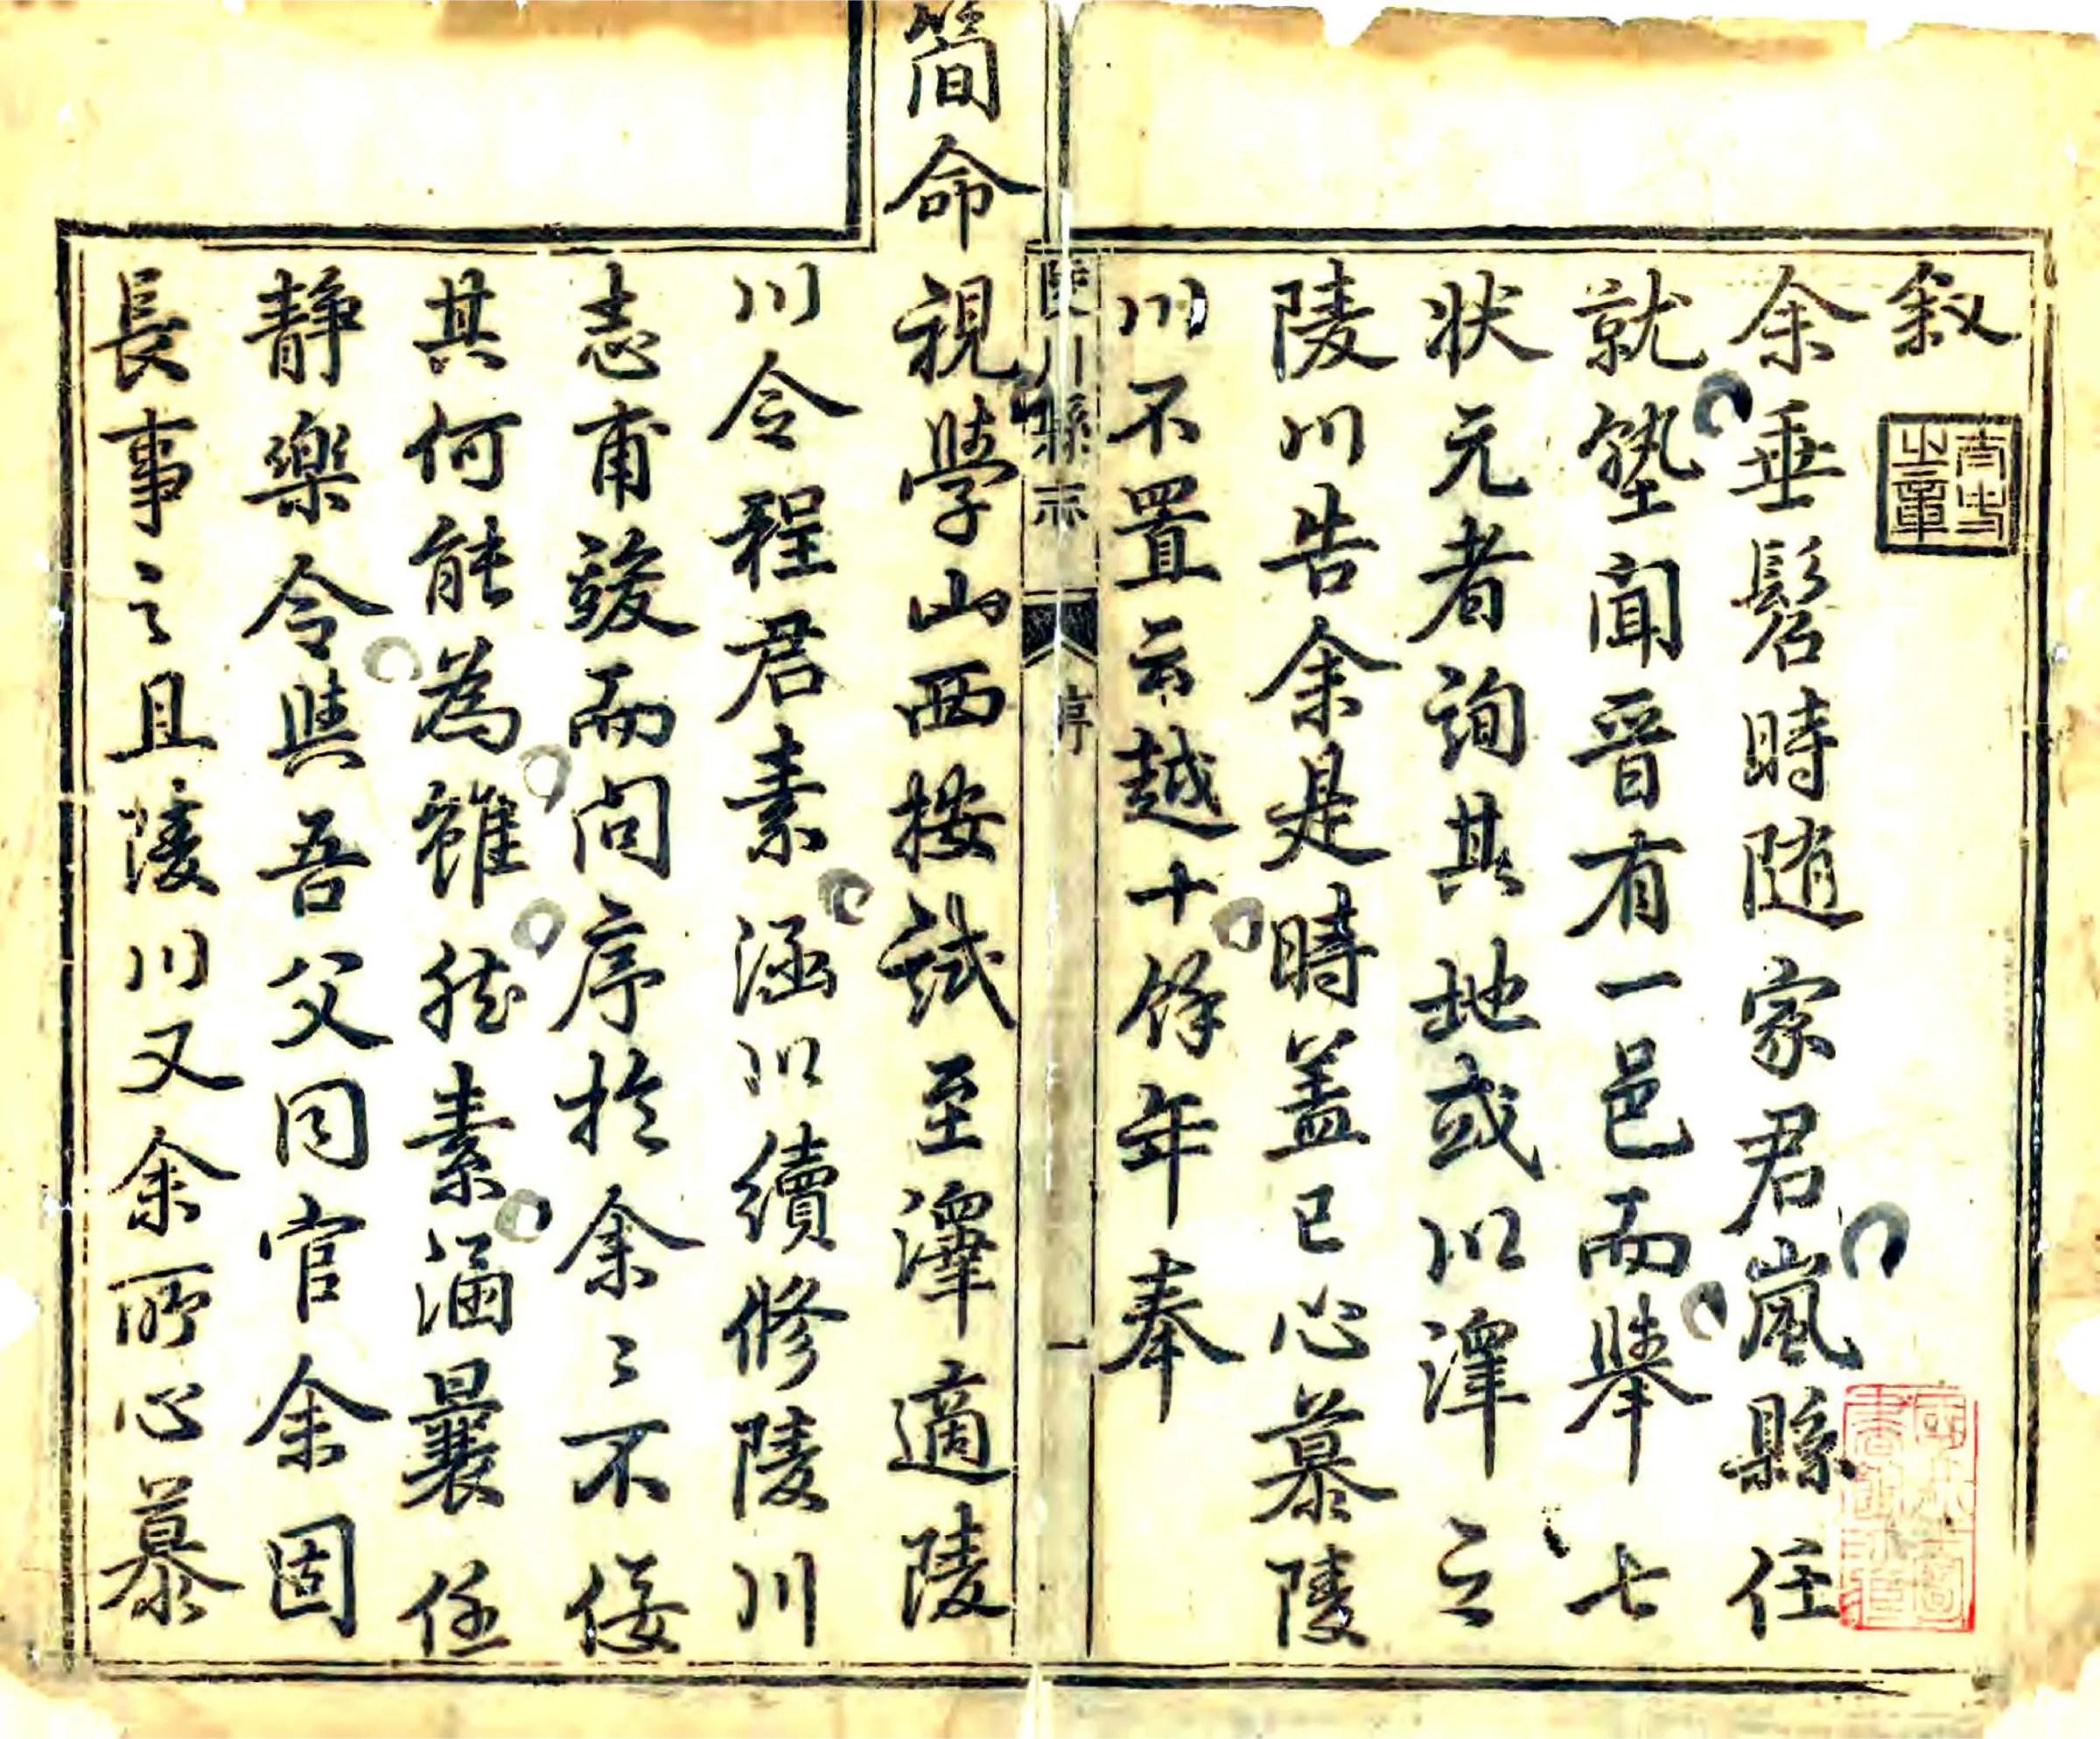 叙
太史之章
余垂髫時随家君嵐縣任
就塾聞晋有一邑而舉七
状元者詢其地或以澤之
陵川告余是時盖已心慕陵
川不置云越十餘年奉
陵川縣志 序 一
簡命視學山西按試至澤適陵
川令程君素涵以續修陵川
志甫竣而問序於余〻不佞
其何能為雖然素涵曩任
静樂令與吾父同官余固
長事之且陵川又余所心慕